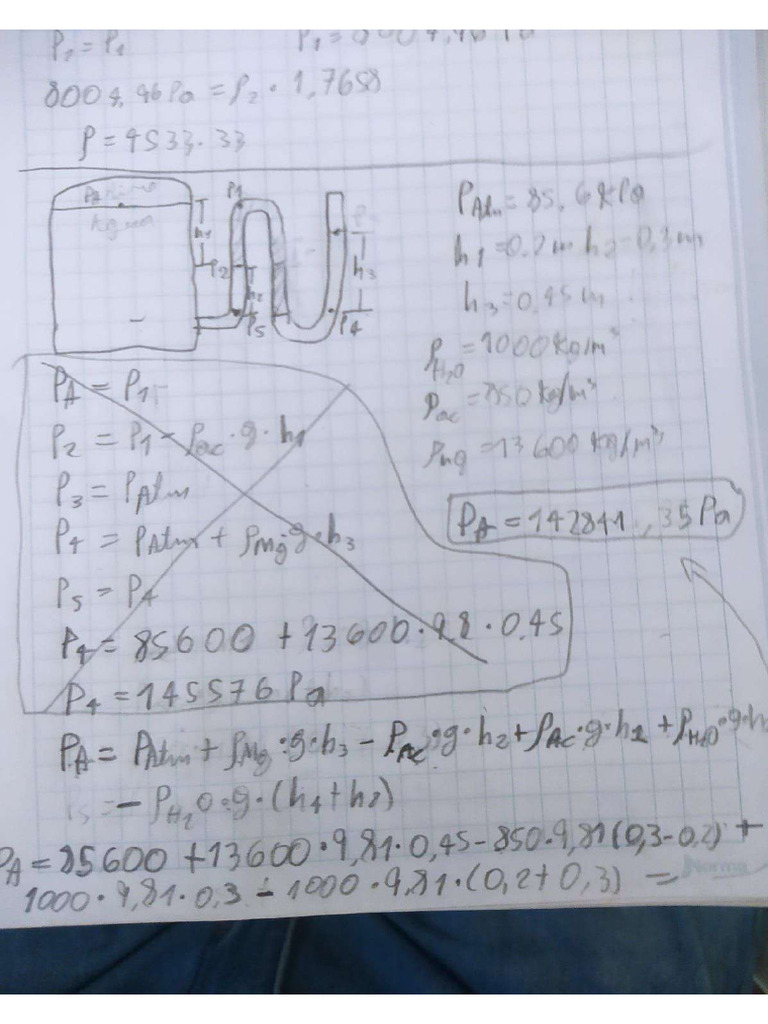 P₂ = P₁
800 4,96 Pa = P₂ · 1,7658
P = 4533.33
Agua
P1
h₁
P₂
h₂
P₅
h₃
P₄
P_Atm = 85,6 kPa
h₁ = 0.2 m h₂ = 0,3 m
h₃ = 0,45 m
ρ_H₂O = 1000 kg/m³
ρ_ac = 850 kg/m³
ρ_Mg = 13600 kg/m³
P_A = 142841,35 Pa
P_A = P₁
P₂ = P₁ - ρ_ac · g · h₁
P₃ = P_Atm
P₄ = P_Atm + ρ_Mg g·h₃
P₅ = P₄
P₄ = 85600 + 13600 · 9,8 · 0,45
P₄ = 145576 Pa
P_A = P_Atm + ρ_Mg · g · h₃ - ρ_Ac · g · h₂ + ρ_Ac · g · h₁ + ρ_H₂O · g · h
= - ρ_H₂O · g · (h₁ + h₂)
P_A = 85600 + 13600 · 9,81 · 0,45 - 850 · 9,81 (0,3 - 0,2) +
1000 · 9,81 · 0,3 - 1000 · 9,81 · (0,2 + 0,3) =
Norma